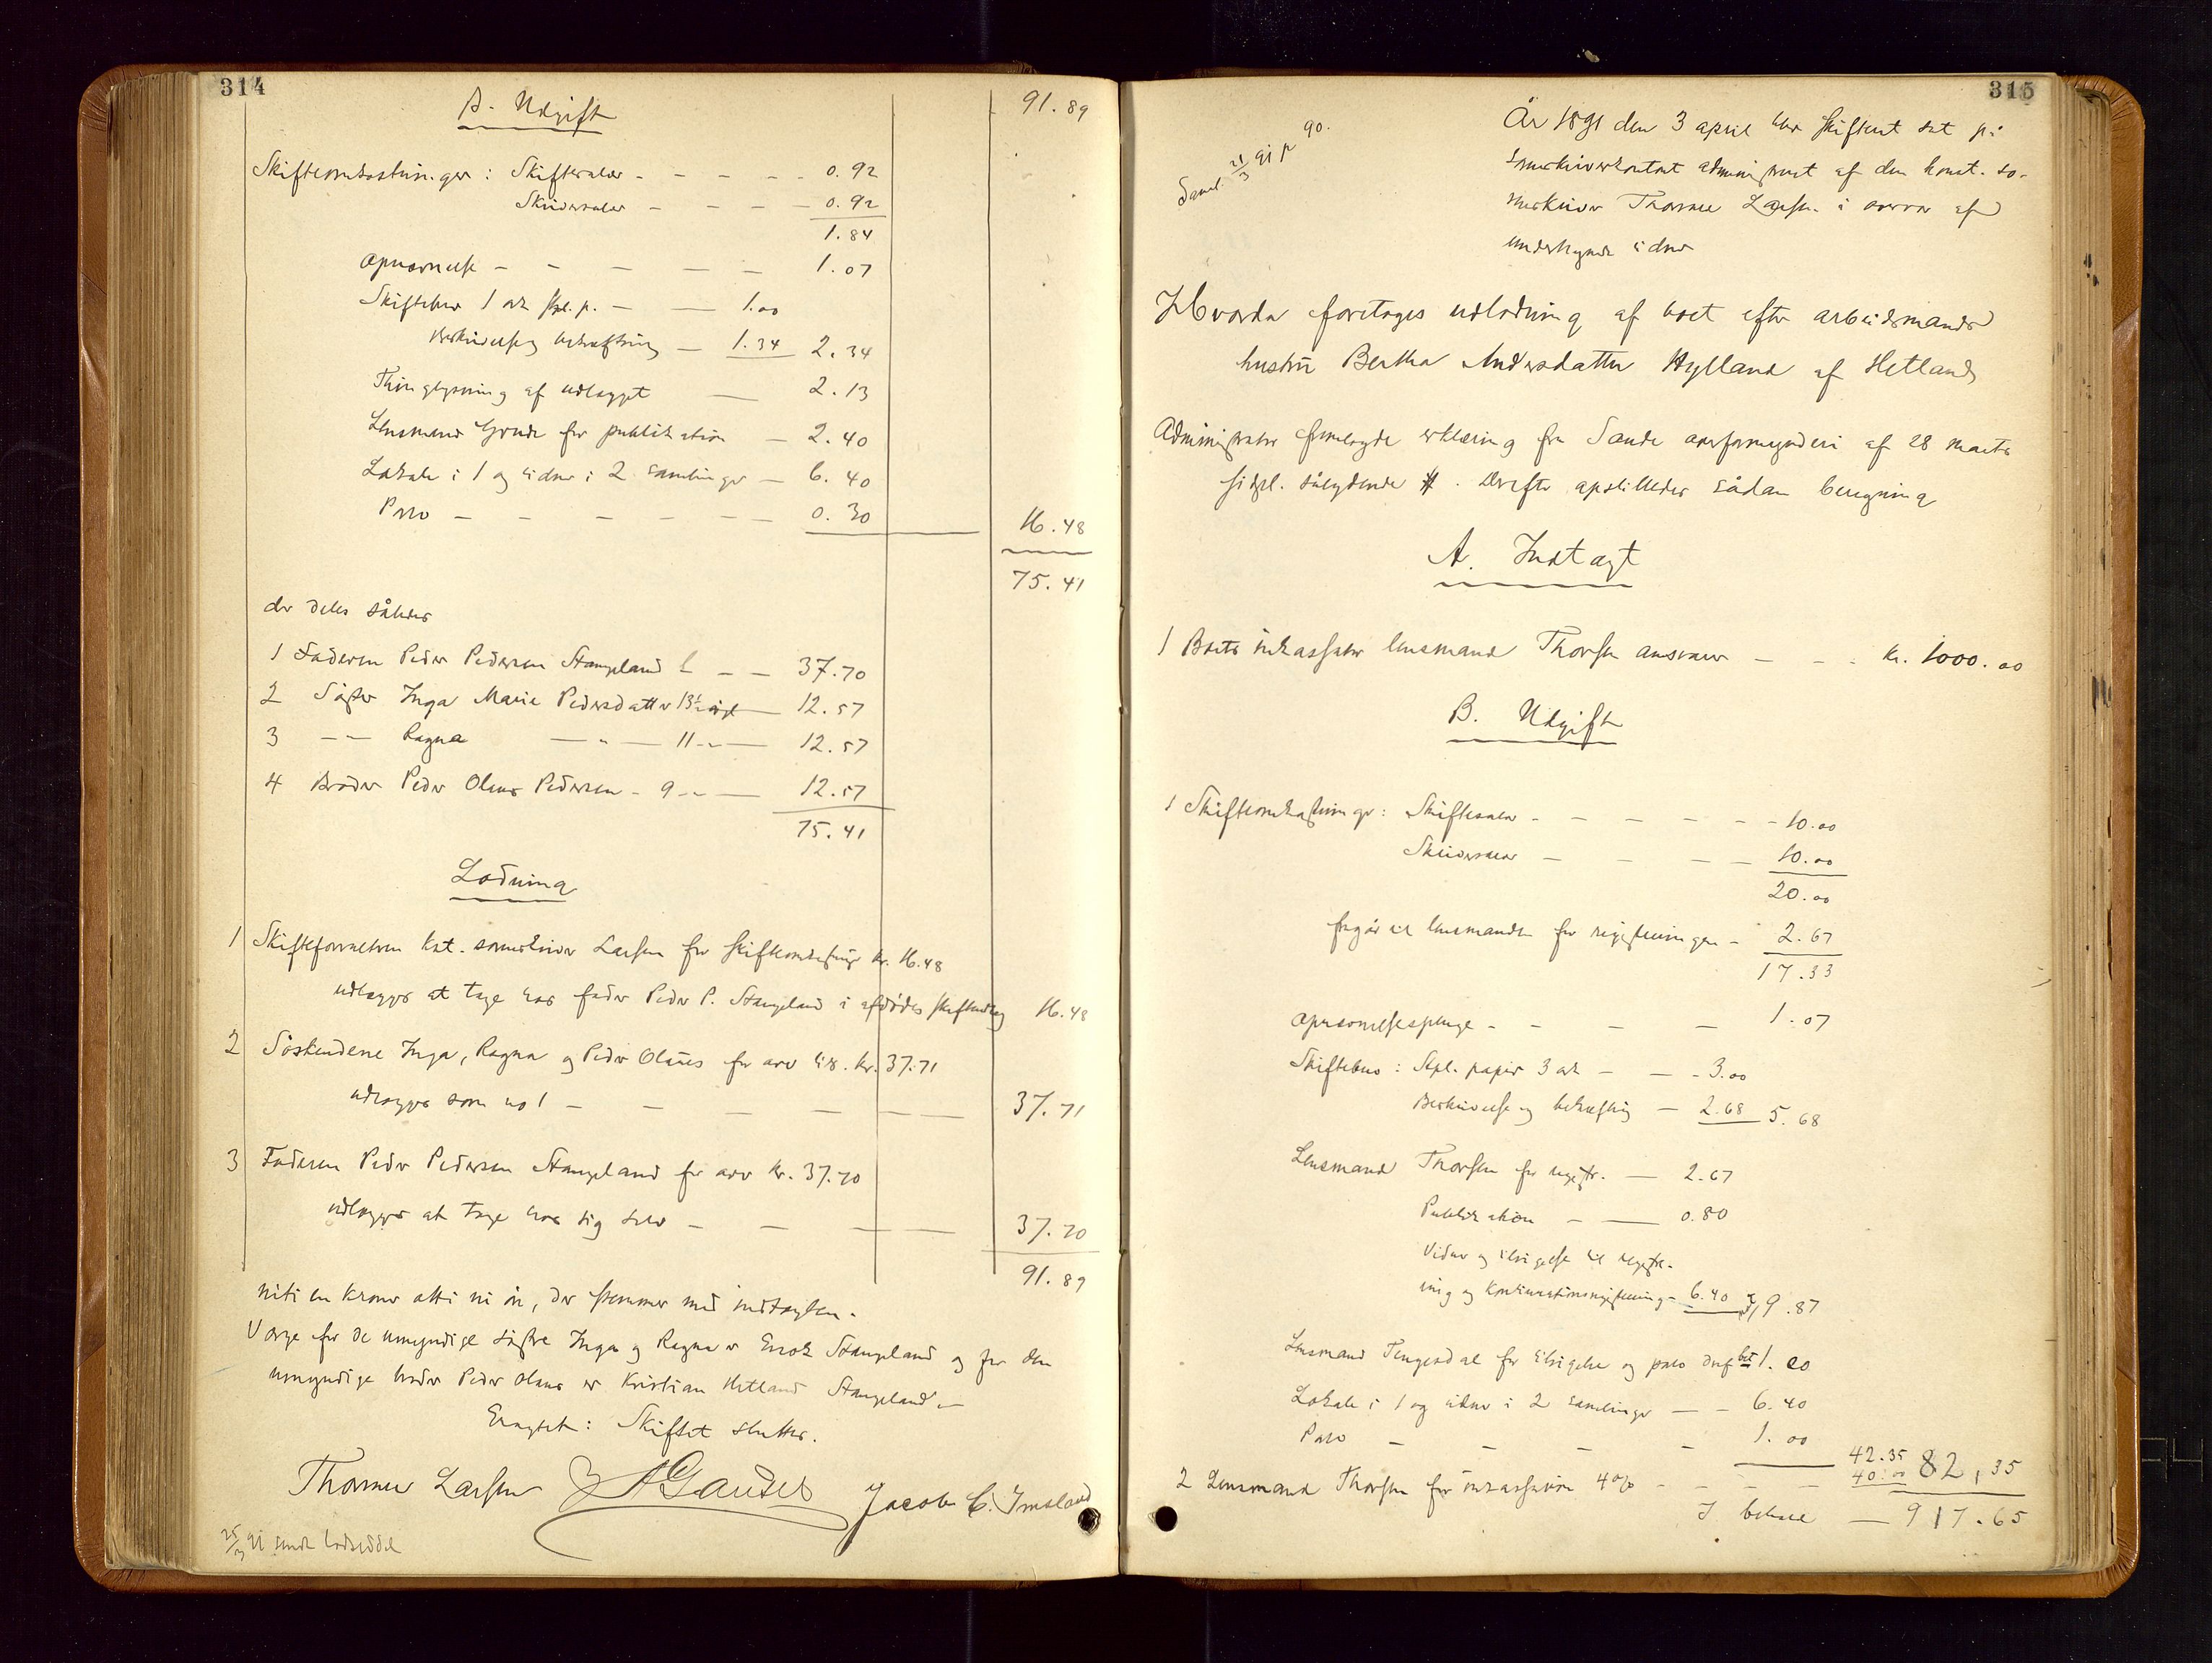 314
B. Udgift
91.89
Skifteomkostninger: Skiftesalær - - - - - 0.92
Skriversalær - - - - 0.92
1.84
Opnævnelse - - - - - 1.07
Skiftebrev 1 ark stpl. p. - - 1.00
Beskrivelse og bekræftning - 1.34 2.34
Thinglysning af udlægget - 2.13
Lensmand Grude for publikation - 2.40
Lokale i 1 og vidner i 2 samlinger - 6.40
Porto - - - - - - 0.30
16.48
75.41
der deles således
1 Faderen Peder Pedersen Stangeland - - 37.70
2 Søster Inga Marie Pedersdatter 13½ år - 12.57
3 - - Ragna - " - 11 - " - 12.57
4 Broder Peder Olaus Pedersen - 9 - " - 12.57
75.41
Lodning
1 Skifteforvalteren kst. sorenskriver Larsen for skifteomkostninger kr. 16.48
udlægges at tage hos fader Peder P. Stangeland i afdødes 16.48
2 Søskendene Inga, Ragna og Peder Olaus for arv tils. kr. 37.71
udlægges som no 1 - - - - - - 37.71
3 Faderen Peder Pedersen Stangeland for arv kr. 37.70
udlægges at tage hos sig selv - - - - 37.70
91.89
niti en kroner otti ni øre, der stemmer med indtægten.
Værge for de umyndige søstre Inga og Ragna er Enok Stangeland og for den
umyndige broder Peder Olaus er Kristian Hetland Stangeland.
Eragtet: Skiftet sluttes.
Thormer Larsen A Gauser Jacob C. Imsland
25/3 91 sendt lodseddel
315
Saml. 21/3 91 p 90.
År 1891 den 3 april blev skifteret sat på
sorenskriverkontoret administreret af den konst. so-
renskriver Thormer Larsen i overvær af
undertegnede vidner
Hvorda foretoges udlodning af boet efter arbeidsmands
hustru Bertha Andersdatter Hylland af Hetland
Administrator fremlagde erklæring fra Sande overformynderi af 28 marts
sidstl. sålydende #. Derefter opstilledes sådan beregning
A. Indtægt
1 Boets inkassator lensmand Thorsen ansvarer - - - kr. 1000.00
B. Udgift
1 Skifteomkostninger: Skiftesalær - - - - - - 10.00
Skriversalær - - - - 10.00
20.00
fragår til lensmanden for registreringen - 2.67
17.33
Opnævnelsespenge - - - - 1.07
Skiftebrev: Stpl. papir 3 ark - - - 3.00
Beskrivelse og bekræftning - 2.68 5.68
Lensmand Thorsen for registr. - 2.67
Publikation - - 0.80
Vidner og tilsigelse til registre-
ring og kontinuationsregistrering - 6.40 9.87
Lensmand Tengesdal for tilsigelse og porto 1.00
Lokale i 1 og vidner i 2 samlinger - - 6.40
Porto - - - - 1.00
42.35
2 Lensmand Thorsen for inkassation 4% - - - 40.00 82,35
I behold - 917.65